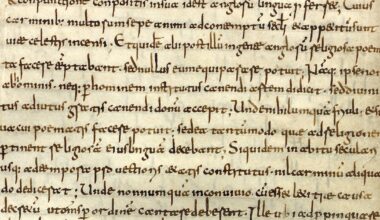 & conpunctione conpositis insua idest anglorum lingua proferret. Cuius
carminib; multorum sepe animi adcontemptum scli & appetitum sunt
uite celestis incensi. Et quidem & alii post illum ingente anglorum religiosa poe
mata facere temptabant. sed nullus eum equiparare potuit. Naq; ipse non
ab hominib; neq; p hominem institutus canendi artem didicit. sed diuini
tus adiutus gratis canendi donum accepit. Unde nihil umquam friuoli. & sup
uacui poematis facere potuit. sed ea tantummodo que adreligionem
pertinent religiosam eius linguam decebant. Siquidem in abitu seculari
usq; ad tempora prouectioris etatis constitutus. nil carminum aliquan
do didicerat. Unde nonnumquam inconuiuio. cum esset letitie causa
decretum. ut omnes p ordinem cantare deberent. Ille ubi adpropinquare